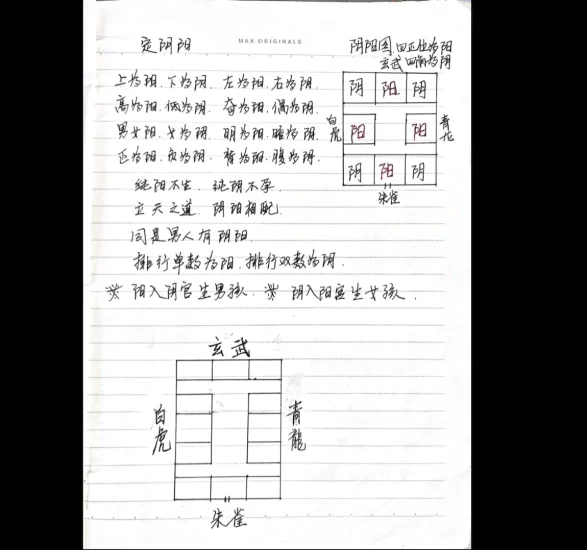 MAX ORIGINALS
定阴阳
阴阳图.四正位为阳
玄武 四隅为阴
上为阳.下为阴.左为阳.右为阴.
高为阳.低为阴.奇为阳.偶为阴.
男为阳.女为阴.明为阳.暗为阴.
正为阳.负为阴.背为阳.腹为阴.
纯阳不生.纯阴不孕.
立天之道 阴阳相配.
同是男人有阴阳.
排行单数为阳.排行双数为阴.
※ 阳入阴宫生男孩.※ 阴入阳宫生女孩.
阴 阳 阴
白虎 阳 阳 青龙
阴 阳 阴
朱雀
玄武
白虎
青龍
朱雀